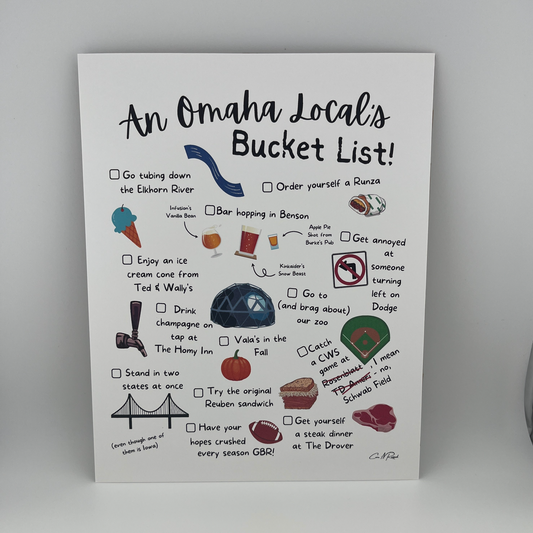 An Omaha Local's
Bucket List!
Go tubing down
the Elkhorn River
Order yourself a Runza
Infusion's
Vanilla Bean
Bar hopping in Benson
Apple Pie
Shot from
Burke's Pub
Kinkaider's
Snow Beast
Get annoyed
at
someone
turning
left on
Dodge
Enjoy an ice
cream cone from
Ted & Wally's
Go to
(and brag about)
our zoo
Drink
champagne on
tap at
The Homy Inn
Vala's in the
Fall
Catch
a CWS
game at
Rosenblatt, I mean
TD Amer.. - no,
Schwab Field
Stand in two
states at once
Try the original
Reuben sandwich
(even though one of
them is Iowa)
Have your
hopes crushed
every season GBR!
Get yourself
a steak dinner
at The Drover